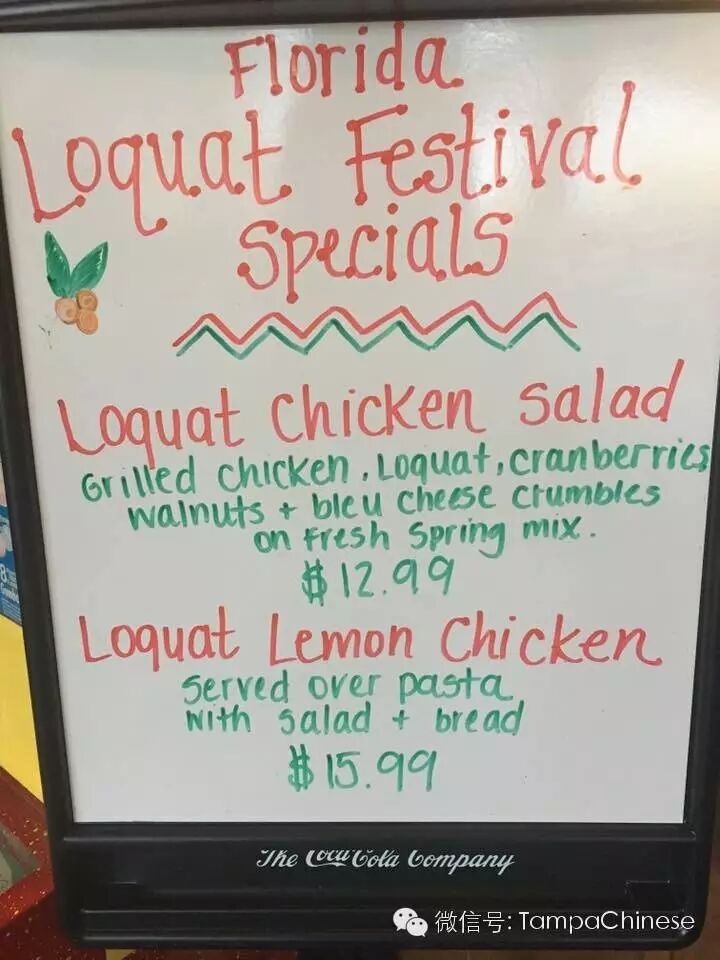 Florida
Loquat Festival
Specials
Loquat Chicken Salad
Grilled Chicken, Loquat, cranberries
walnuts + bleu cheese crumbles
on fresh spring mix.
$12.99
Loquat Lemon Chicken
served over pasta
with salad + bread
$15.99
The Coca-Cola Company
微信号: TampaChinese